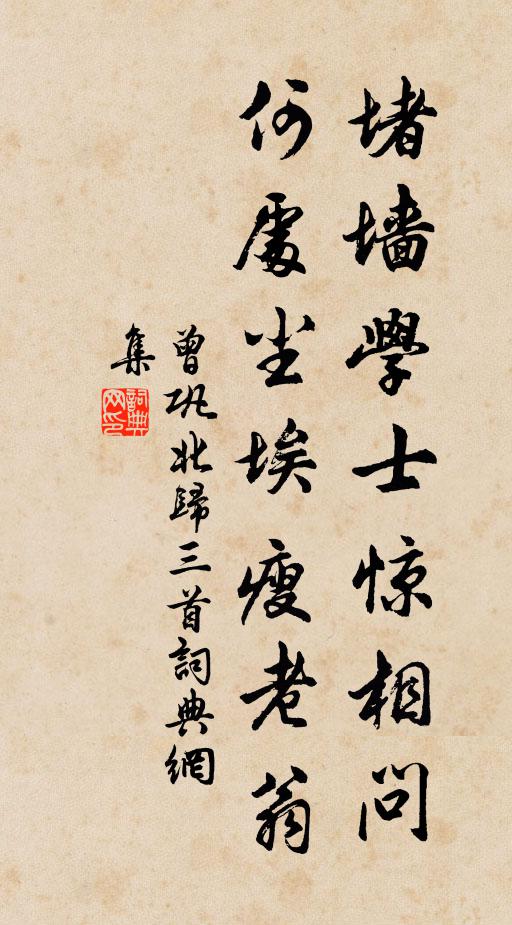 堵墙學士惊相問
何處尘埃瘦老翁
曾巩北歸三首詞典網
集
詞典
网印